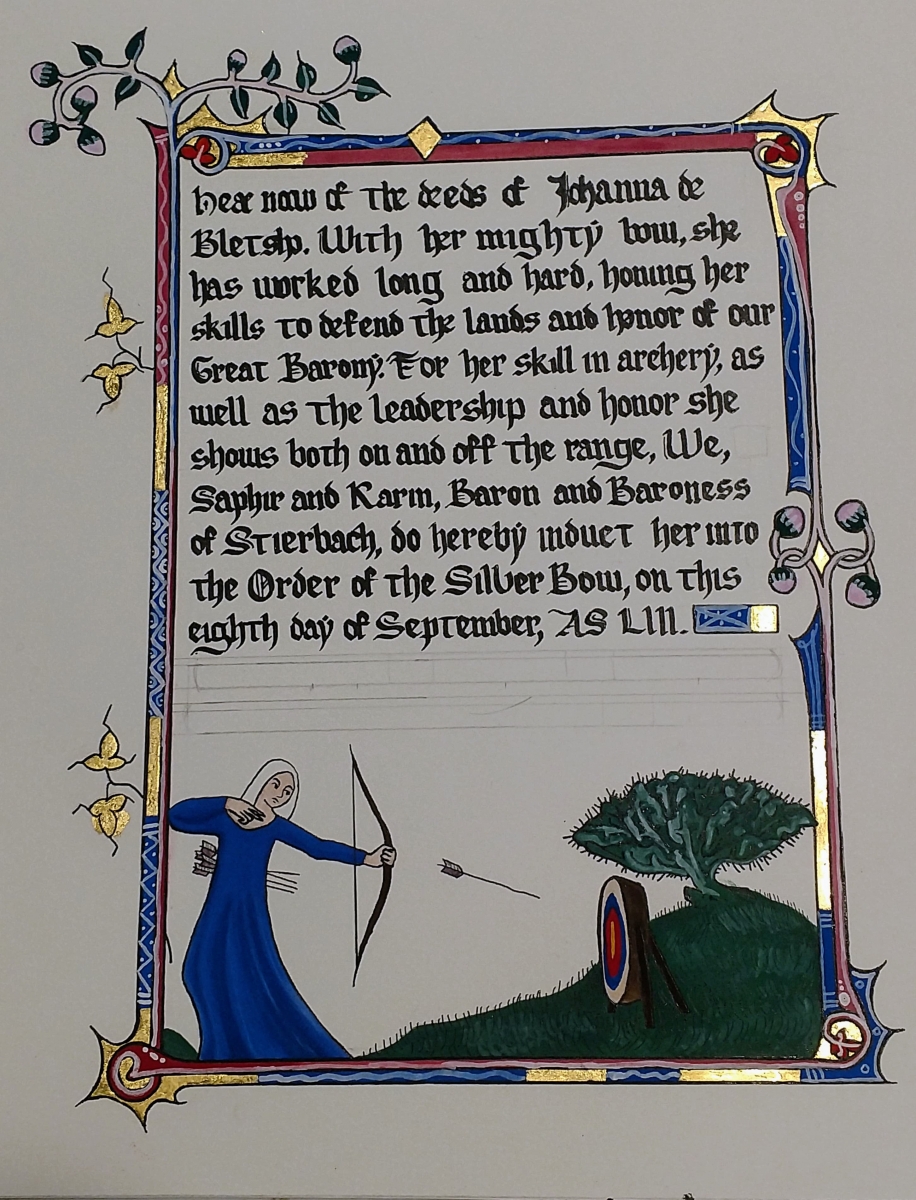 Hear now of the deeds of Johanna de
Bletshp. With her mighty bow, she
has worked long and hard, honing her
skills to defend the lands and honor of our
Great Barony. For her skill in archery, as
well as the leadership and honor she
shows both on and off the range, We,
Saphir and Karin, Baron and Baroness
of Stierbach, do hereby induct her into
the Order of the Silver Bow, on this
eighth day of September, AS LIII.